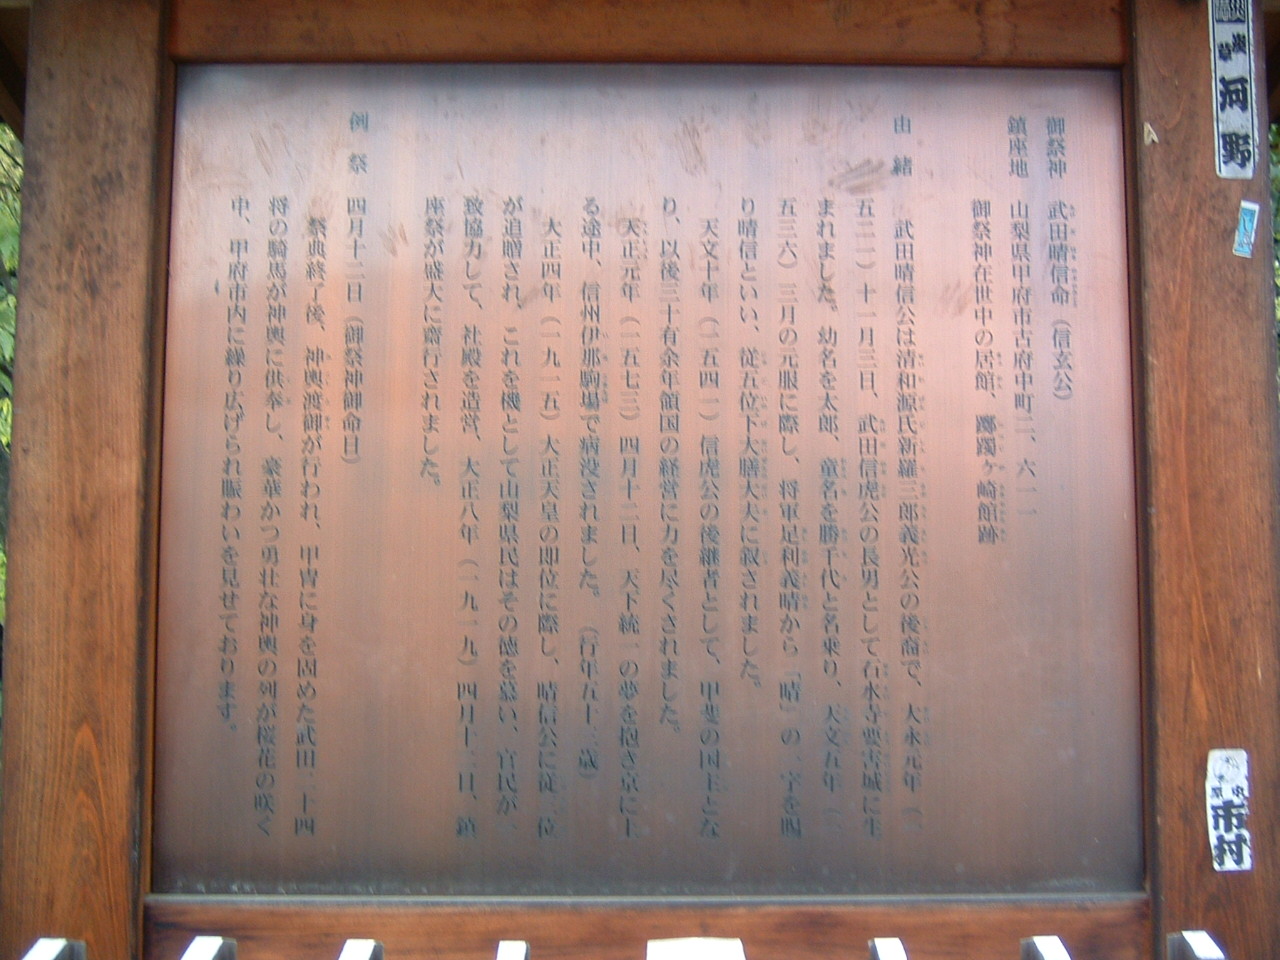 御祭神　武田晴信命（信玄公）
鎮座地　山梨県甲府市古府中町二、六一一
御祭神在世中の居館、躑躅ヶ崎館跡
由　緒
武田晴信公は清和源氏新羅三郎義光公の後裔で、大永元年（一
五二一）十一月三日、武田信虎公の長男として石水寺要害城に生
まれました。幼名を太郎、童名を勝千代と名乗り、天文五年（一
五三六）三月の元服に際し、将軍足利義晴から「晴」の一字を賜
り晴信といい、従五位下大膳大夫に叙されました。
天文十年（一五四一）信虎公の後継者として、甲斐の国主とな
り、以後三十有余年領国の経営に力を尽くされました。
天正元年（一五七三）四月十二日、天下統一の夢を抱き京に上
る途中、信州伊那駒場で病没されました。（行年五十三歳）
大正四年（一九一五）大正天皇の即位に際し、晴信公に従三位
が追贈され、これを機として山梨県民はその徳を慕い、官民が一
致協力して、社殿を造営、大正八年（一九一九）四月十二日、鎮
座祭が盛大に齋行されました。
例　祭　四月十二日（御祭神御命日）
祭典終了後、神輿渡御が行われ、甲冑に身を固めた武田二十四
将の騎馬が神輿に供奉し、豪華かつ勇壮な神輿の列が桜花の咲く
中、甲府市内に繰り広げられ賑わいを見せております。
河野
市村